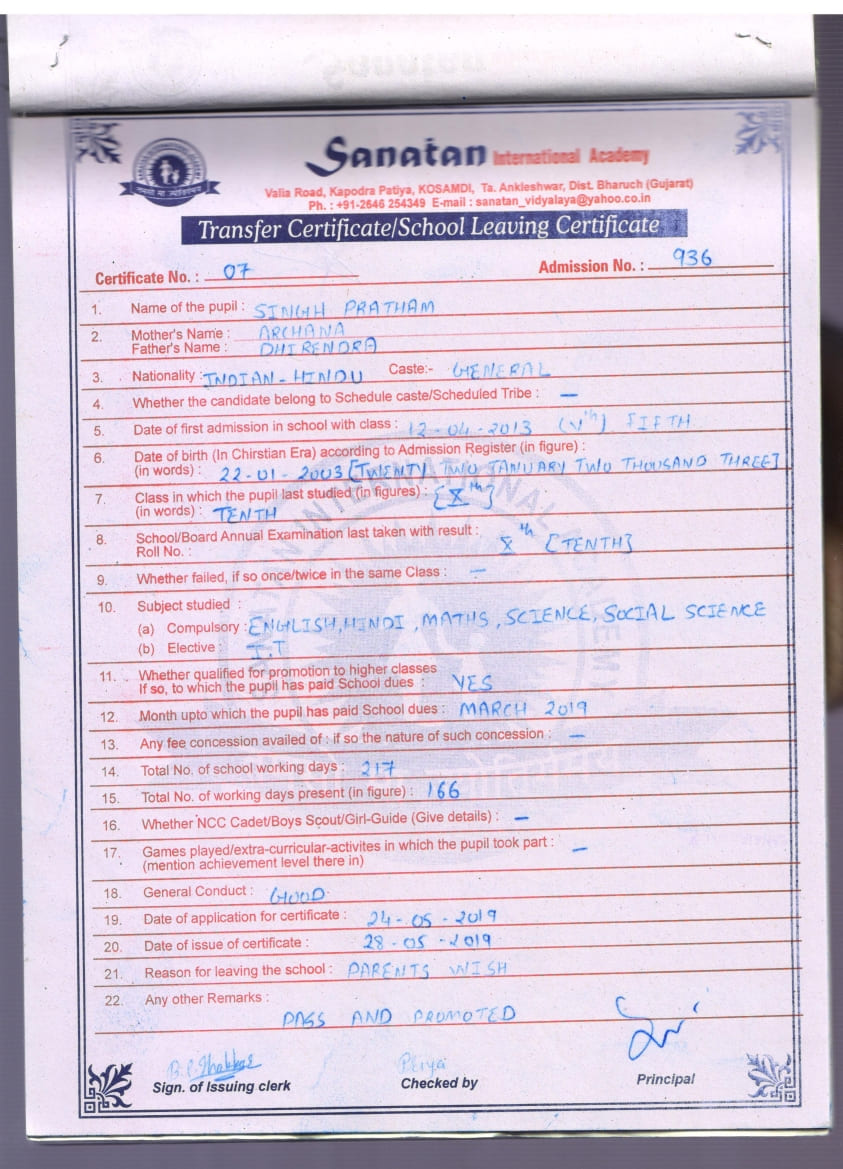 Sanatan International Academy
Valia Road, Kapodra Patiya, KOSAMDI, Ta. Ankleshwar, Dist. Bharuch (Gujarat)
Ph. : +91-2646 254349 E-mail : sanatan_vidyalaya@yahoo.co.in
Transfer Certificate/School Leaving Certificate
Certificate No. : 07 Admission No. : 936
1. Name of the pupil : SINGH PRATHAM
2. Mother's Name : ARCHANA
Father's Name : DHIRENDRA
3. Nationality : INDIAN - HINDU Caste:- GENERAL
4. Whether the candidate belong to Schedule caste/Scheduled Tribe : —
5. Date of first admission in school with class : 12-04-2013 (Vth) FIFTH
6. Date of birth (In Chirstian Era) according to Admission Register (in figure) :
(in words) : 22-01-2003 [TWENTY TWO JANUARY TWO THOUSAND THREE]
7. Class in which the pupil last studied (in figures) : {Xth}
(in words) : TENTH
8. School/Board Annual Examination last taken with result :
Roll No. : Xth [TENTH]
9. Whether failed, if so once/twice in the same Class : —
10. Subject studied :
(a) Compulsory : ENGLISH, HINDI, MATHS, SCIENCE, SOCIAL SCIENCE
(b) Elective : I.T
11. Whether qualified for promotion to higher classes
If so, to which the pupil has paid School dues : YES
12. Month upto which the pupil has paid School dues : MARCH 2019
13. Any fee concession availed of : if so the nature of such concession : —
14. Total No. of school working days : 217
15. Total No. of working days present (in figure) : 166
16. Whether NCC Cadet/Boys Scout/Girl-Guide (Give details) : —
17. Games played/extra-curricular-activites in which the pupil took part : —
(mention achievement level there in)
18. General Conduct : GOOD
19. Date of application for certificate : 24-05-2019
20. Date of issue of certificate : 28-05-2019
21. Reason for leaving the school : PARENTS WISH
22. Any other Remarks :
PASS AND PROMOTED
Priya
Sign. of Issuing clerk Checked by Principal